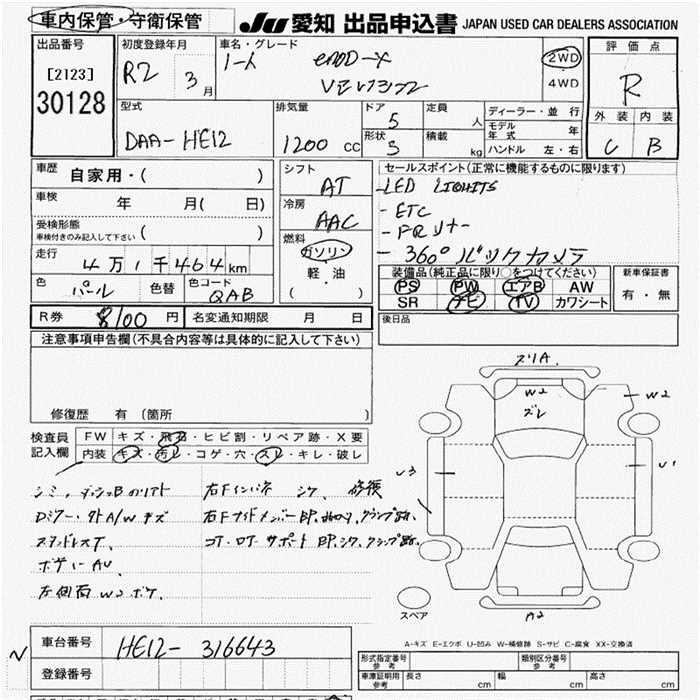 車内保管・守衛保管
JU 愛知 出品申込書 JAPAN USED CAR DEALERS ASSOCIATION
出品番号
[2123]
30128
初度登録年月
R2 3月
車名・グレード
2WD
4WD
評価点
R
外装 内装
C B
型式
DAA-HE12
排気量
1200 CC
ドア
5
形状
5
定員
人
積載
kg
ディーラー・並行
モデル年式 年
ハンドル 左・右
車歴
自家用・( )
車検
年 月( 日)
受検形態
車検付きのみ記入して下さい ( )
走行
4万1千464km
色
パール
色替
色コード
QAB
シフト
AT
冷房
AAC
燃料
ガソリン
軽・油
( )
セールスポイント(正常に機能するものに限ります)
-LED LIGHITS
- ETC
- 360° バックカメラ
装備品(純正品に限り○をつけてください)
PS PW エアB AW
SR ナビ TV カワシート
新車保証書
有・無
R券 8100 円
名変通知期限 月 日
後日品
注意事項申告欄(不具合内容等は具体的に記入して下さい)
修復歴 有 (箇所 )
検査員記入欄
FW キズ・飛石・ヒビ割・リペア跡・X要
内装 キズ・汚レ・コゲ・穴・スレ・キレ・破レ
シミ,ダッシュB
Dミラー・外A/W キズ
スタッドレスT、
ボデーAU
左側面W2ボケ、
右Fインパネ シワ、修復
右FサイドメンバーEP、曲り、クランプ跡、
コT・ロT サポート EP、シワ、クランプ跡、
ズリA.
W2
ズレ
W2
U3
U1
A2
スペア
A-キズ E-エクボ U-凹み W-補修跡 S-サビ C-腐食 XX-交換済
車台番号
HE12- 316643
登録番号
形式指定番号 参考
類別区分番号 参考
車庫証明用 参考
長さ cm
幅 cm
高さ cm